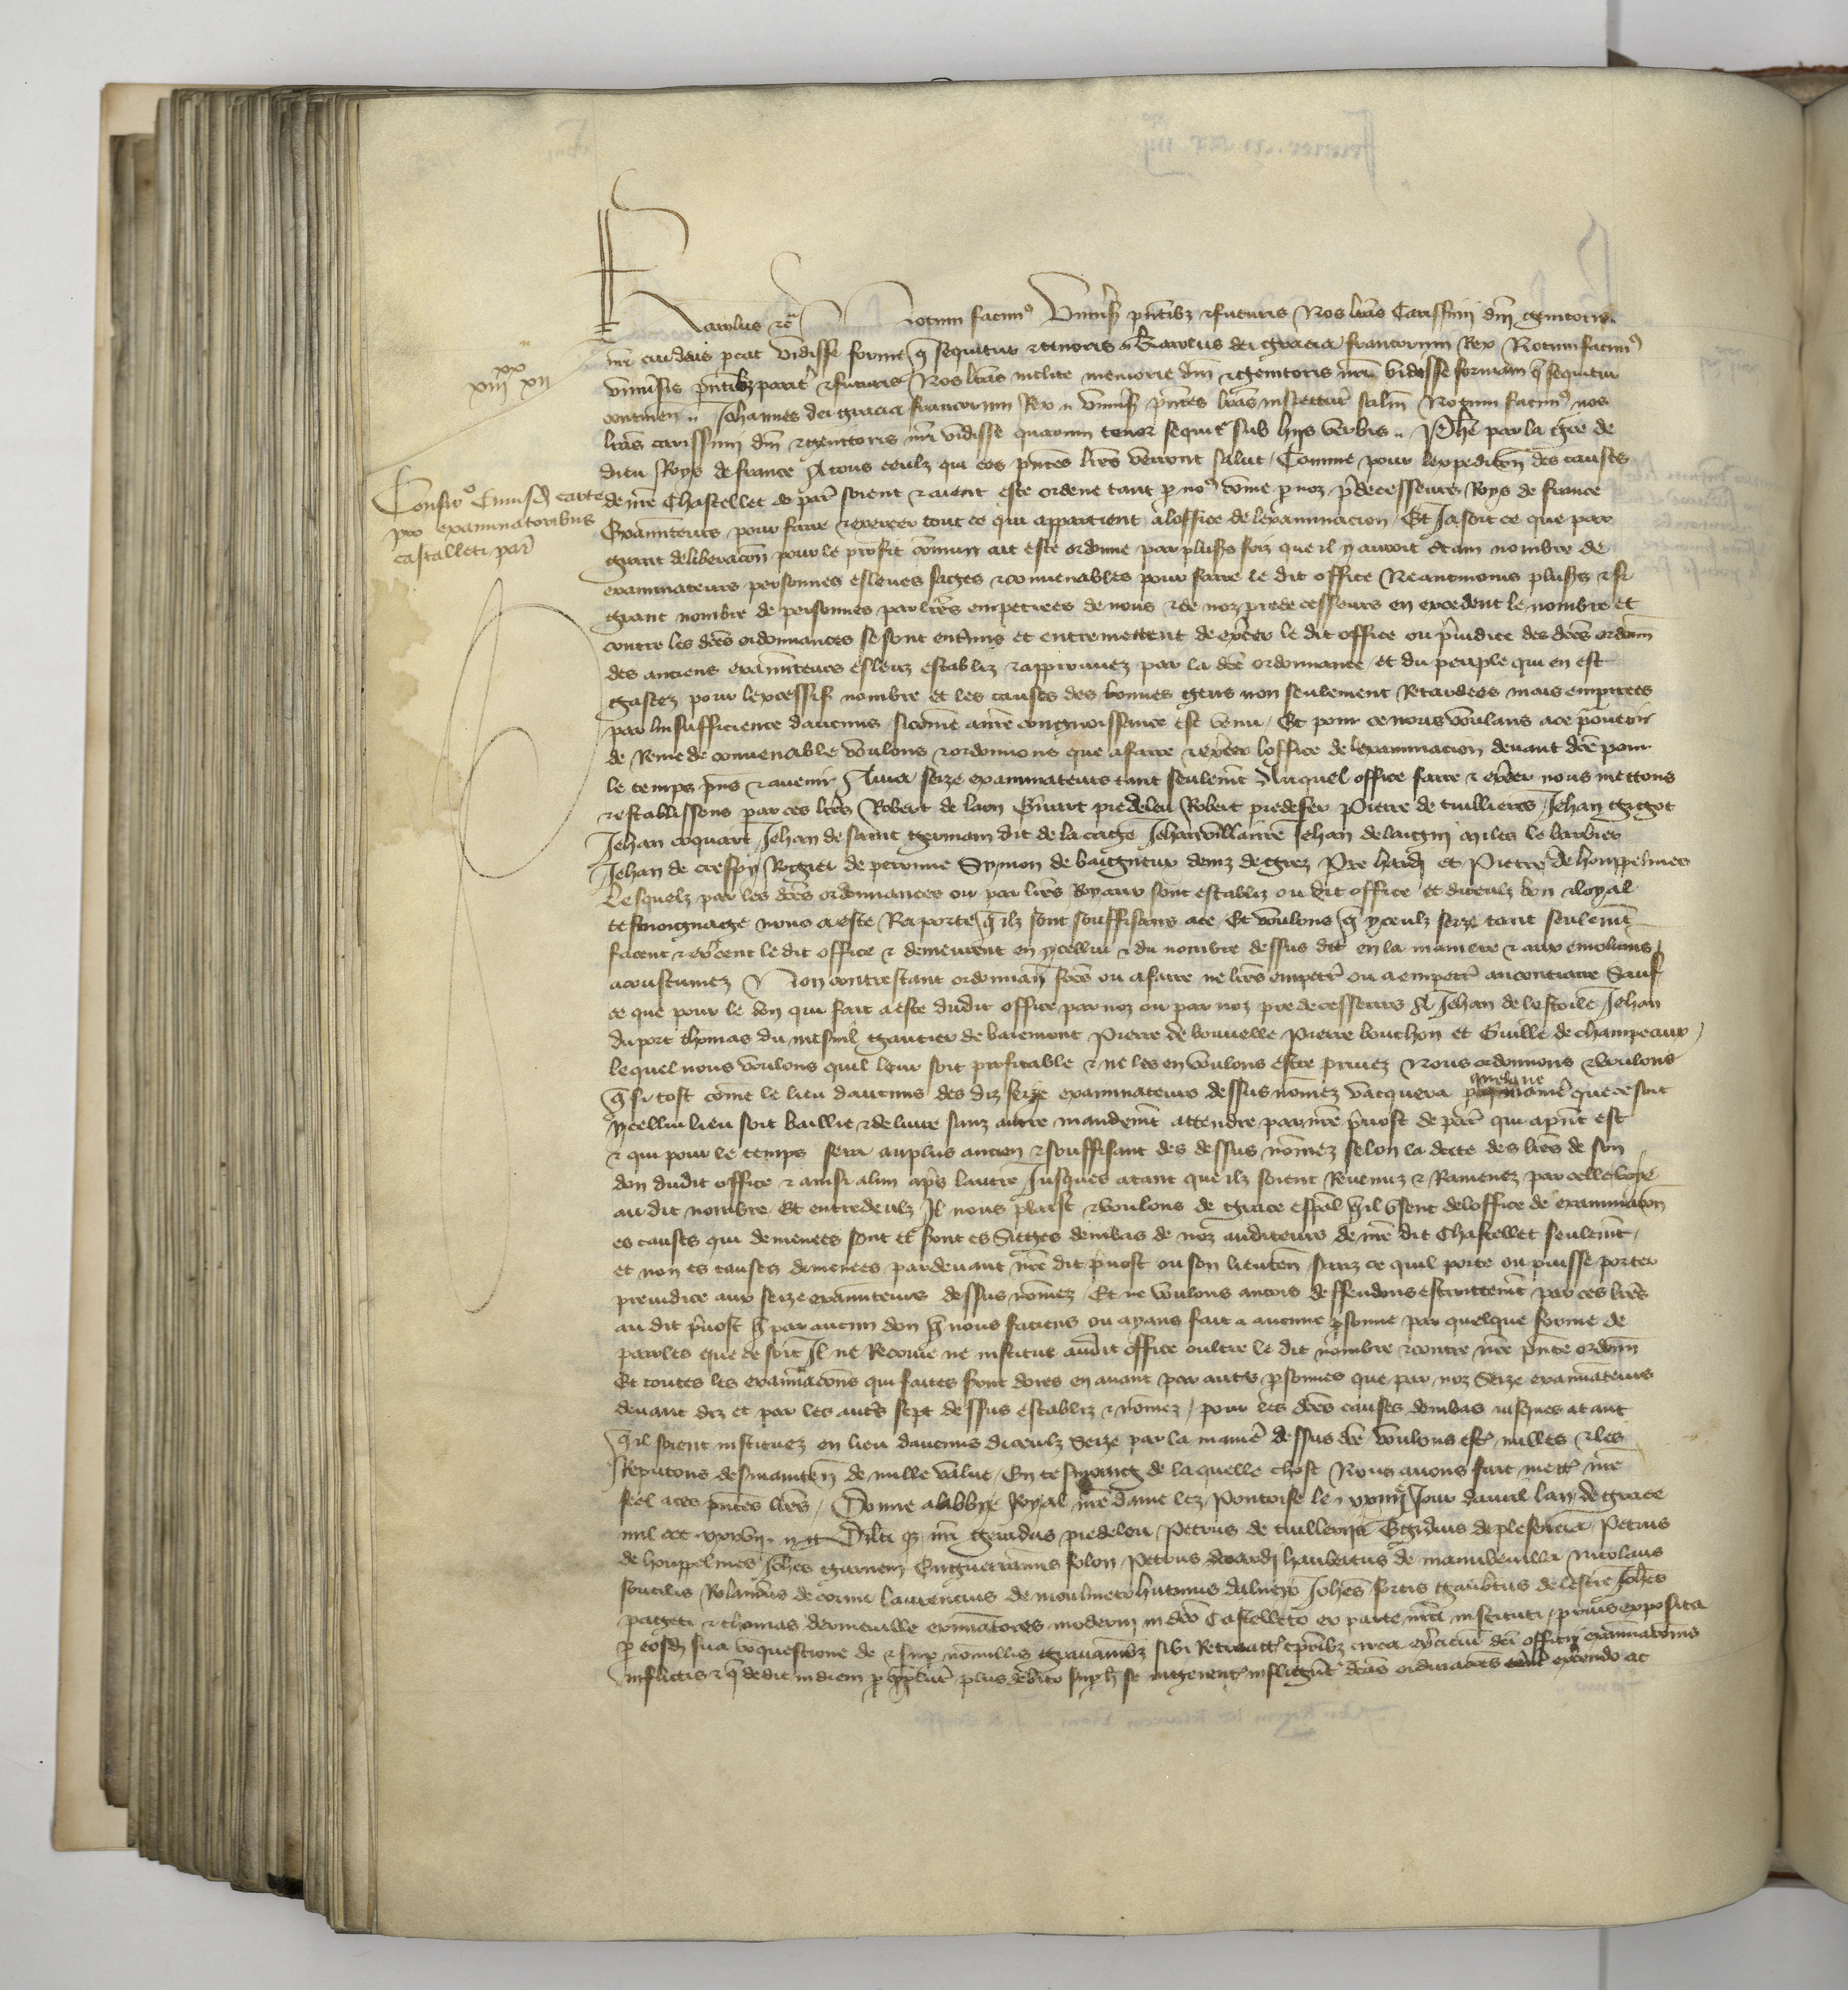 Karolus etc̃ Notum facimꝰ Univ̾sis p̃ntibꝫ et futuris Nos lr̃as Carissimi dñi genitoris
nr̃i cui deus p̃cat vidisse formã q̃ sequitur et tenoris .. Karolus dei gracia francorum Rex Notum facimꝰ
univ̾sis p̃ntibꝫ parit̾ et futuris Nos lr̃as inclite memorie dñi et genitoris nr̃i vidisse formam q̃ sequitur
continen̄ .. Johannes dei gracia francorum Rex .. univ̾sis p̃ntes lr̃as inspectur̾ salt̃m Notum facimꝰ nos
lr̃as carissimi dñi et genitoris nr̃i vidisse quarum tenor sequit̾ sub hys verbis .. Phẽ par la grã de
dieu Roys de france A tous ceulz qui ces p̃ntes lr̃es verront salut Comme pour lexpedicõn des causes
de nr̃e Chastellet de par̾ soient et aient este ordene tant p noꝰ cõme p noz p̃decesseurs Roys de france
Examĩteurs pour faire et exercer tout ce qui appartient a loffice de lexaminacion Et Ja soit ce que par
grant deliberacõn pour le profit cõmun ait este ordonne par plus̃s foiz que il y auroit c̾tain nombre de
examinateurs personnes esleues sages et convenables pour faire le dit office Neantmoins plus̃s et si
grant nombre de personnes par lr̃es empetrees de nous et de noz predecesseurs en excedent le nombre et
contre les dc̃es ordonnances se sont entremis et entremettent de exc̾er le dit office ou p̃iudice des dc̃es ordoñn
des anciens examĩteurs esleuz establiz et approuvez par la dc̃e ordonnance et du peuple qui en est
gastez pour lexcessif nombre et les causes des bonnes gens non seulement Retardees mais empirees
par linsufficience daucuns sicõme a nr̃e congnoissance est venu Et pour ce nous voulans a ce p̃oveoir
de Remede convenable voulons et ordonnons que a faire et exc̾er loffice de lexaminacion devant dc̃e pour
le temps p̃ns et avenir Aura seize examinateurs tant seulem̃t Auquel office faire et exc̾er nous mettons
et establissons par ces lr̃es Robert de laon Gerart piedeleu Robert piedefer Pierre de tuillieres Jehan gigot
Jehan coquart Jehan de saint germain dit de la cage Jehan villaire Jehan de laigni Miles le barbier
Jehan de crespy Rogier de peronne Symon de baigneux Deniz de grez Pr̃e hardi et Pierre de houppelines
Lesquelz par les dc̃es ordonnances ou par lr̃es Royaux sont establiz ou dit office et diceulz bon et loyal
tesmoignage nous a este Raporte q̃ ilz sont souffisans a ce Et voulons q̃ yceulz seize tant seulem̃t
facent et exc̾cent le dit office et demeurent en ycellui et du nombre dessus dit en la maniere et aux emolumẽs
acoustumez Non contrestant ordonnan̄ fc̃es ou a faire ne lr̃es empetr̾ ou a empetr̾ au contraire Sauf
ce que pour le don qui fait a este dudit office par noz ou par noz predecesseurs A Jehan de lestoile Jehan
du port thomas du mesnil gautier de baiemont Pierre de bouvelle Pierre bouchon et Guille de champeaux
lequel nous voulons quil leur soit profitable et ne les en voulons estre privez Nous ordonnons et voulons
q̃ si tost cõme le lieu daucuns des diz seize examinateurs dessus nõmez vacquera p quelque manie̾ que ce soit
ycellui lieu soit baillie et delivre sanz autre mandem̃t attendre par nr̃e p̃vost de par̾ qui a p̃nt est
et qui pour le temps sera au plus ancien et souffisant des dessus nõmez selon la date des lr̃es de son
don dudit office et ainsi a lun ap̃s lautre Jusques atant que ilz soient Revenuz et Ramenez par celle voye
au dit nombre Et entredeulz Il nous plaist et voulons de grace esp̃al q̃l usent de loffice de examinacõn
es causes qui demenees sont et seront es Sieges denbas de noz auditeurs de nr̃e dit Chastellet seulem̃t
et non es causes demenees pardevant nr̃e dit p̃vost ou son lieuten̄ sanz ce quil porte ou puisse porter
preiudice aux seize examĩteurs dessus nõmez Et ne voulons ancois deffendons estroittem̃t par ces lr̃es
au dit p̃vost q̃ par aucun don q̃ nous facions ou ayans fait a aucune psonne par quelque forme de
paroles que ce soit Il ne Recoive ne institue audit office oultre le dit nombre et contre nr̃e p̃nte ordoñn
Et toutes les examĩacõns qui faites seront dores en avant par autr̾s psonnes que par noz Seize examinateurs
devant diz et par les autr̾s sept dessus establiz et nõmez pour les dc̃es causes denbas iusques atant
q̃l soient instituez en lieu daucuns diceulz Seize par la manie̾ dessus dc̃e voulons est̾ nulles et les
Reputons desmainten̄ de nulle value En tesmoing de laquelle chose Nous avons fait mett̾ nr̃e
seel a ces p̃ntes lr̃es Donne a labbye Royal nr̃e dame lez Pontoise le xxiiij Jour davril lan de grace
mil ccc xxxvij .. Dilc̃i qꝫ nr̃i Gerardus piedeleu Petrus de tuilleriis Egidius de plesencia Petrus
de houppelines Joh̃es garnerii Enguerranus solon Petrus hardi haubertus de manibevilla Nicolaus
soucilis Rolandus de cormis Laurencius de moulineto hutinus dalneto Joh̃es fortis Galt̾us de lescrie Joh̃es
pageti et thomas dermeuille examĩatores moderni in dc̃o Castelleto ex parte nr̃a instituti p̃missa exposita
p eosd̃ sua conquestione de et sup nõnullis gravaminibꝫ sibi circa ex̾cicium dc̃i officii examĩacõnis
inflictis et q̃ de die in diem p plus debito sup h̃ se ingerent̾ infligũt̾ dc̃as ordinacões exc̾endo ac
xx
xiiij xii
Confir̾o Eiusd̃ carte
pro examinatoribus
castalleti par̾